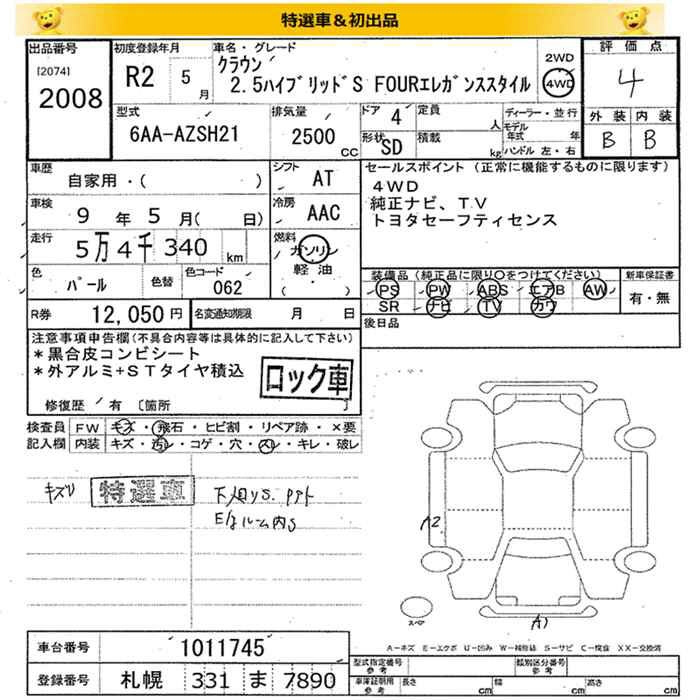 特選車&初出品
出品番号
[2074]
2008
初度登録年月
R2 5月
車名・グレード
クラウン
2.5ハイブリッドS FOURエレガンススタイル
2WD
4WD
評価点
4
外装 内装
B B
型式
6AA-AZSH21
排気量
2500 CC
ドア 4
形状 SD
定員 人
積載 kg
ディーラー・並行
モデル年式 年
ハンドル 左・右
車歴
自家用・( )
車検
9 年 5 月( 日)
走行
5万4千340 km
色
パール
色替
色コード
062
シフト
AT
冷房
AAC
燃料
ガソリン
軽油
・( )
セールスポイント (正常に機能するものに限ります)
4WD
純正ナビ、T.V
トヨタセーフティセンス
装備品(純正品に限り○をつけてください)
PS PW ABS エアB AW
SR ナビ TV カワ
新車保証書
有・無
R券 12,050円
名変通知期限 月 日
後日品
注意事項申告欄(不具合内容等は具体的に記入して下さい)
*黒合皮コンビシート
*外アルミ+STタイヤ積込
ロック車
修復歴/有 〔箇所 〕
検査員記入欄
FW キズ・飛石・ヒビ割・リペア跡・×要
内装 キズ・汚レ・コゲ・穴・スレ・キレ・破レ
特選車
A2
A1
スペア
A-キズ E-エクボ U-凹み W-補修跡 S-サビ C-腐食 XX-交換済
車台番号 1011745
登録番号 札幌 331 ま 7890
型式指定番号 参考
類別区分番号 参考
車庫証明用 参考
長さ cm
幅 cm
高さ cm